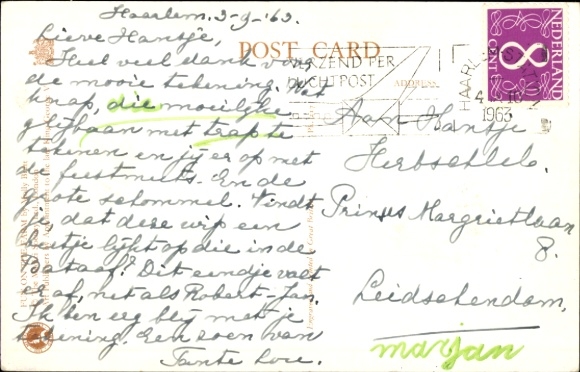 Haarlem. 3-9-'63.
Lieve Hantje,
Heel veel dank voor
de mooie tekening. Wat
knap, die moeilijke
glijbaan met trap te
tekenen en jij er op met
de feestmuts. En de
grote schommel. Vindt
jij, dat deze wip een
beetje lijkt op die in de
Bataaf? Dit eendje valt
er af, net als Robert-Jan.
Ik ben erg blij met je
tekening. Een zoen van
Tante Loes.
POST CARD
ADDRESS
ZEND PER
LUCHTPOST
HAARLEM
4
1963
NEDERLAND
8
CENT
Aan Hantje
Prinses Margrietlaan
8.
Leidschendam.
marjan